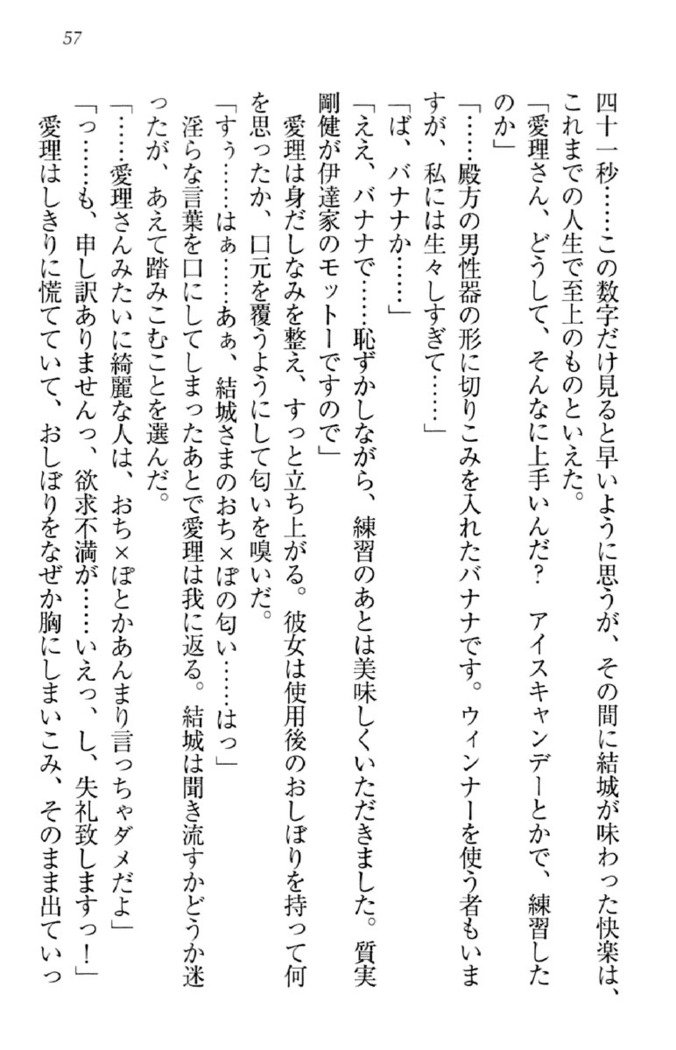 57
四十一秒……この数字だけ見ると早いように思うが、その間に結城が味わった快楽は、
これまでの人生で至上のものといえた。
「愛理さん、どうして、そんなに上手いんだ？　アイスキャンデーとかで、練習した
のか」
「……殿方の男性器の形に切りこみを入れたバナナです。ウィンナーを使う者もいま
すが、私には生々しすぎて……」
「ば、バナナか……」
「ええ、バナナで……恥ずかしながら、練習のあとは美味しくいただきました。質実
剛健が伊達家のモットーですので」
愛理は身だしなみを整え、すっと立ち上がる。彼女は使用後のおしぼりを持って何
を思ったか、口元を覆うようにして匂いを嗅いだ。
「すぅ……はぁ……あぁ、結城さまのおち×ぽの匂い……はっ」
淫らな言葉を口にしてしまったあとで愛理は我に返る。結城は聞き流すかどうか迷
ったが、あえて踏みこむことを選んだ。
「……愛理さんみたいに綺麗な人は、おち×ぽとかあんまり言っちゃダメだよ」
「っ……も、申し訳ありませんっ、欲求不満が……いえっ、し、失礼致しますっ！」
愛理はしきりに慌てていて、おしぼりをなぜか胸にしまいこみ、そのまま出ていっ